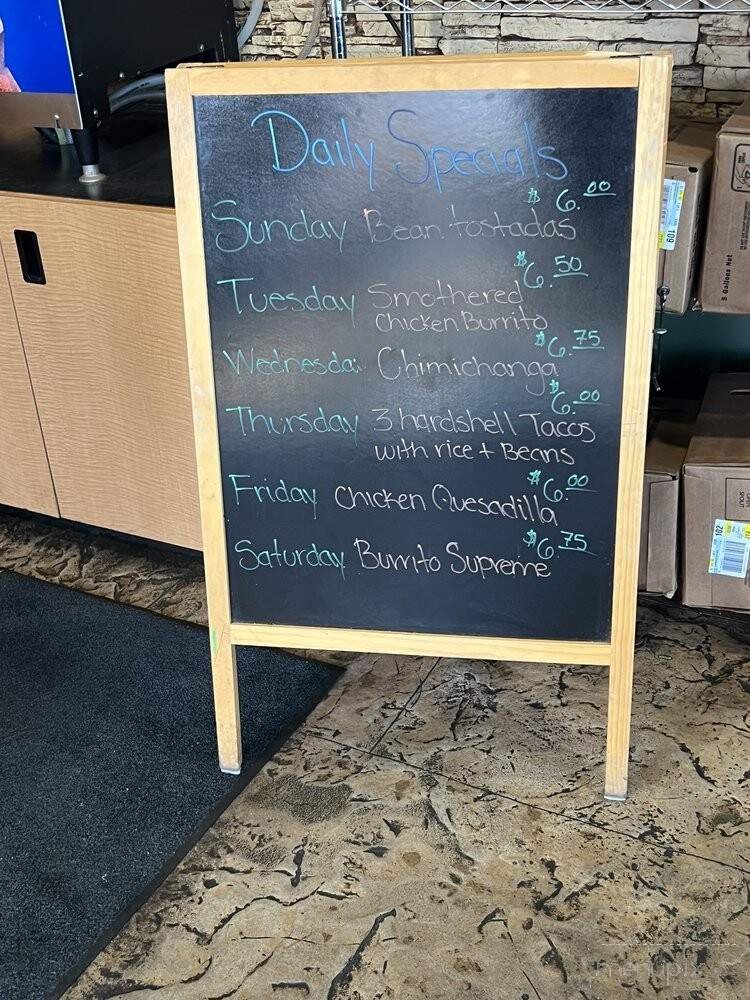 Daily Specials
Sunday Bean tostadas $6.00
Tuesday Smothered $6.50
Chicken Burrito
Wednesda Chimichanga $6.75
Thursday 3 hardshell Tacos $6.00
with rice + Beans
Friday Chicken Quesadilla $6.00
Saturday Burrito Supreme $6.75
109
5 Gallons Net
102
menupix